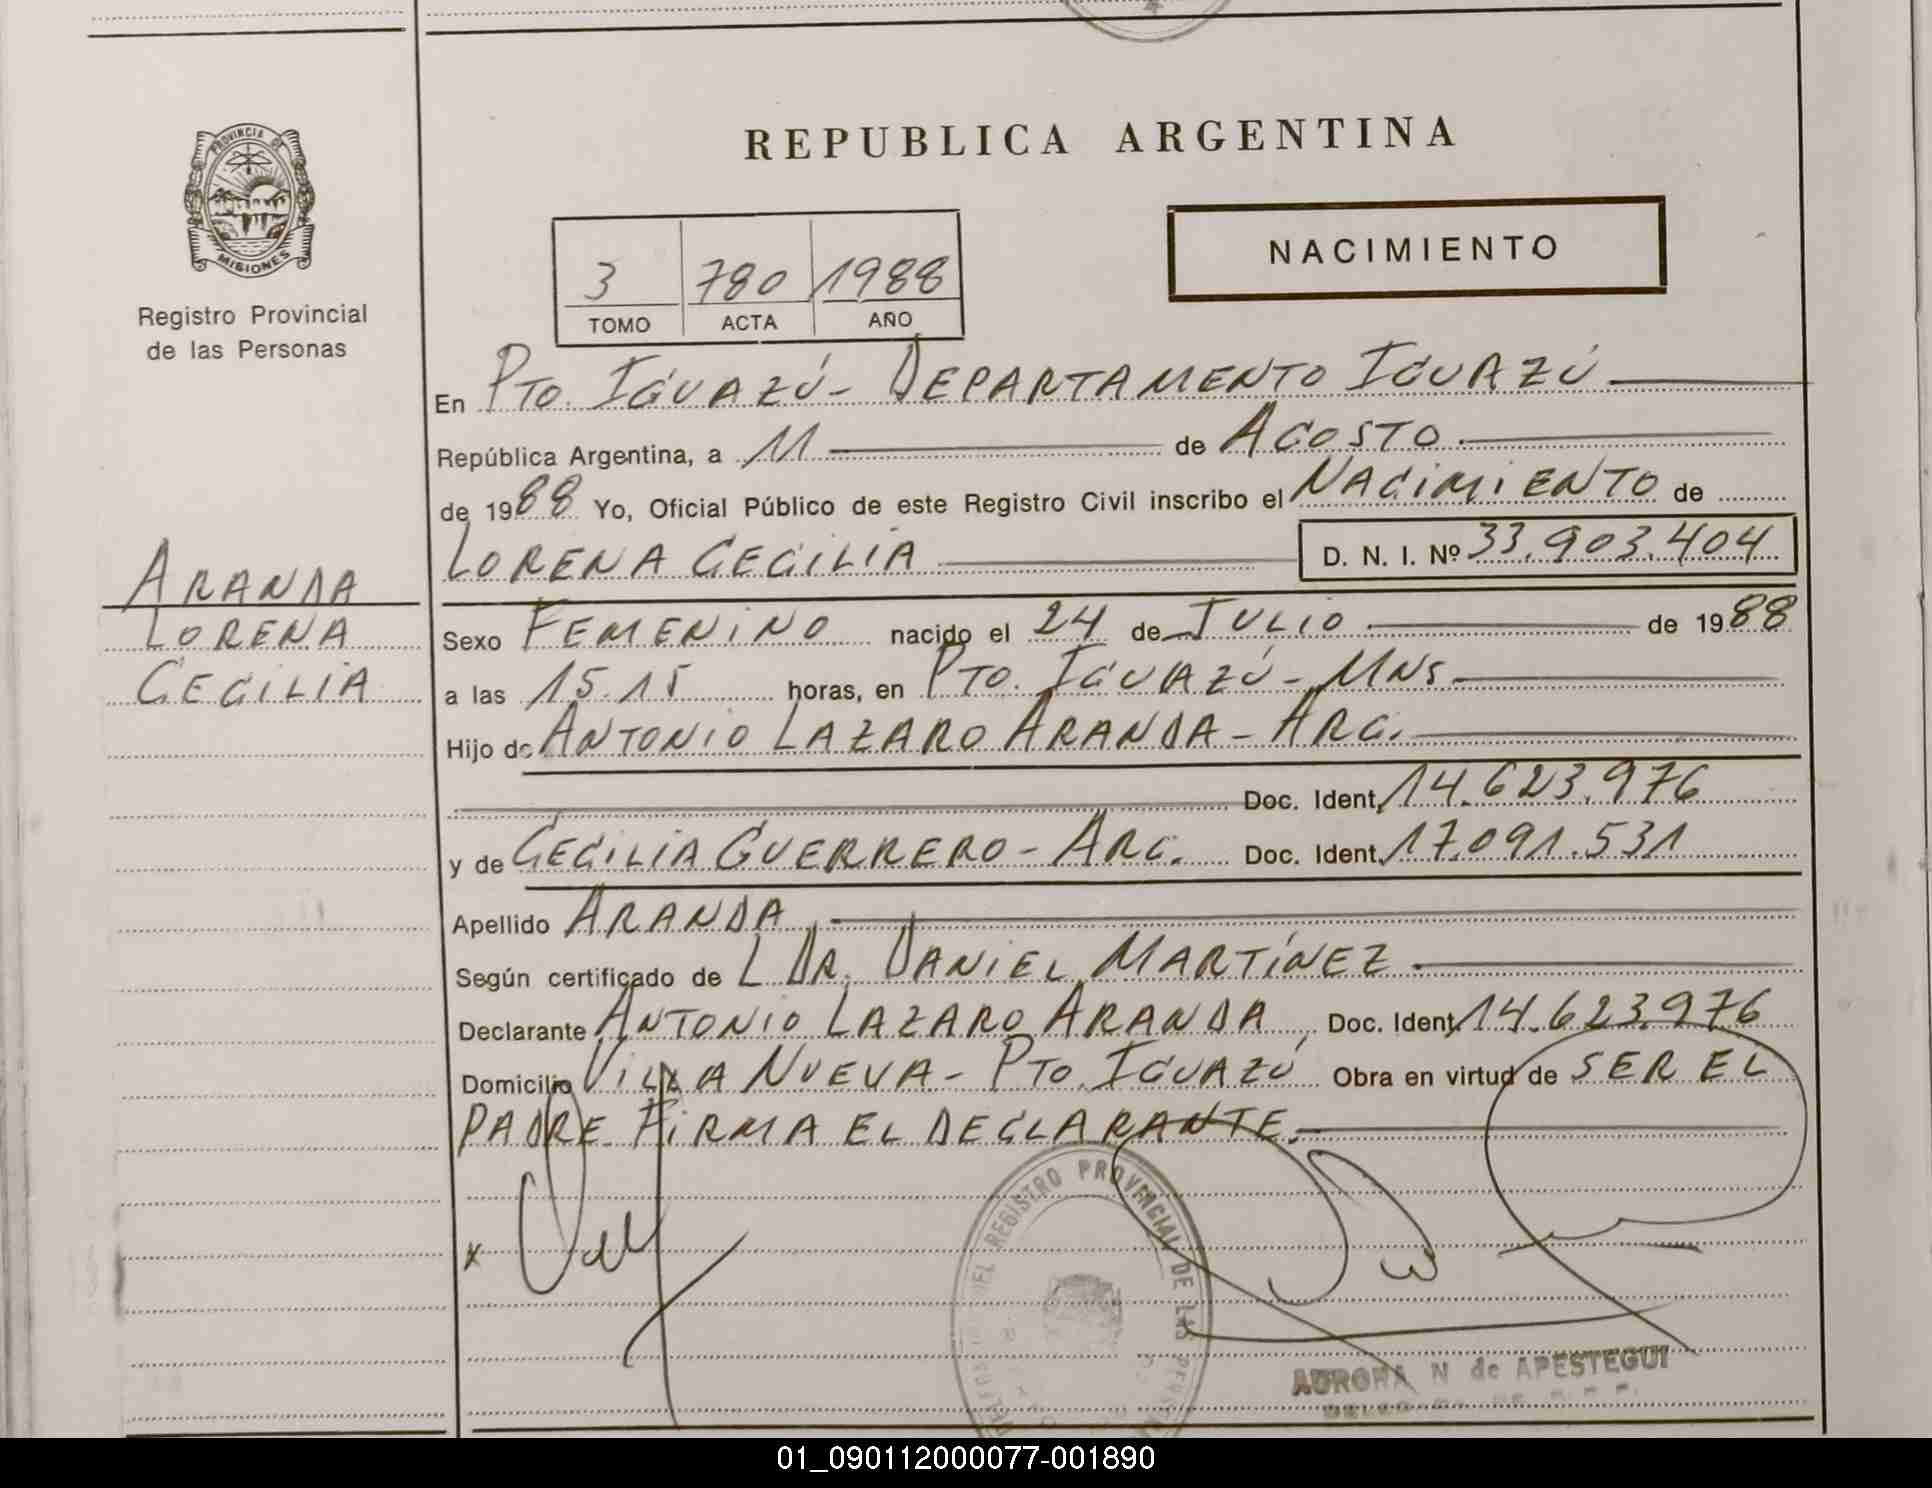 REPUBLICA ARGENTINA
PROVINCIA DE
MISIONES
Registro Provincial
de las Personas
NACIMIENTO
3 780 1988
TOMO ACTA AÑO
En PTO. IGUAZÚ - DEPARTAMENTO IGUAZÚ
República Argentina, a 11 de AGOSTO
de 1988 Yo, Oficial Público de este Registro Civil inscribo el NACIMIENTO de
LORENA CECILIA D. N. I. Nº 33.903.404
ARANDA
LORENA
CECILIA
Sexo FEMENINO nacido el 24 de JULIO de 1988
a las 15.15 horas, en PTO. IGUAZÚ - MNS.
Hijo de ANTONIO LAZARO ARANDA - ARG.
Doc. Ident. 14.623.976
y de CECILIA GUERRERO - ARG. Doc. Ident. 17.091.531
Apellido ARANDA
Según certificado de L DR. DANIEL MARTÍNEZ
Declarante ANTONIO LAZARO ARANDA, Doc. Ident. 14.623.976
Domicilio VILLA NUEVA - PTO. IGUAZÚ Obra en virtud de SER EL
PADRE FIRMA EL DECLARANTE.
x
DEL REGISTRO PROVINCIAL DE LAS
AURORA N de APESTEGUI
01_090112000077-001890